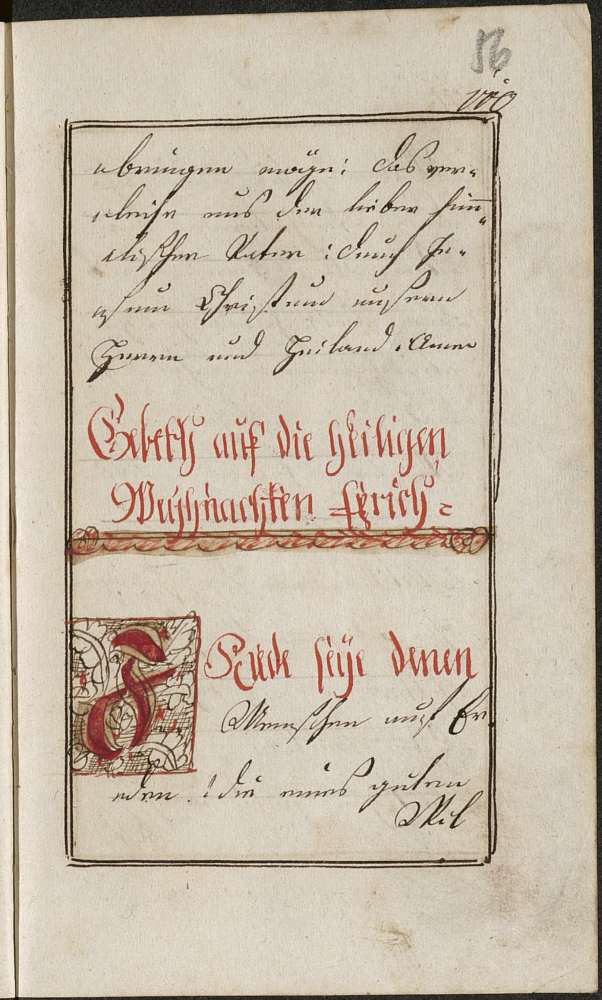 56
abringen möge: das ver-
rleihe uns der lieber him̅-
dlischer Vater: durch Je-
esum Christum unsern
Herren und Heiland. Amen
Gebeth auf die heiligen
Weyhnachten
F Riede seÿe denen
Menschen auf Er
rden! die eines guten
Wil